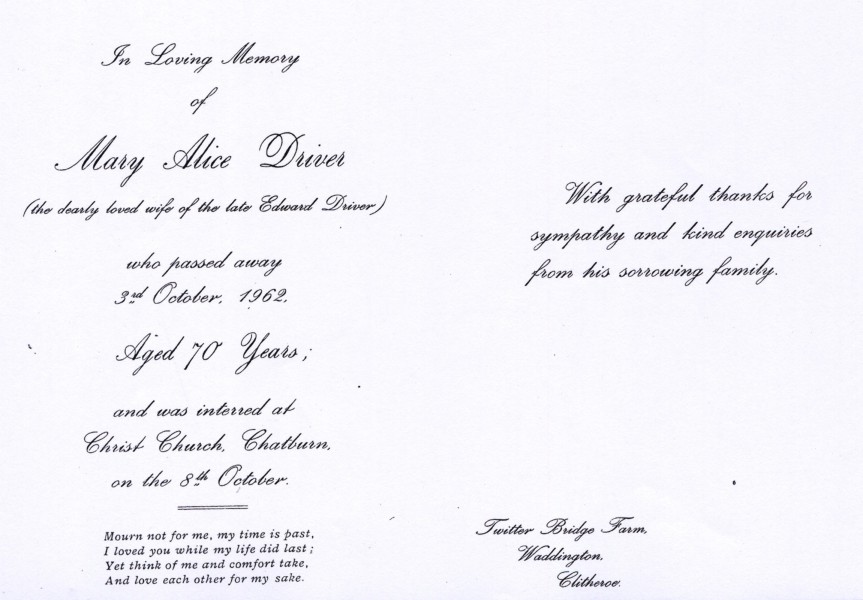 In Loving Memory
of
Mary Alice Driver
(the dearly loved wife of the late Edward Driver)
who passed away
3rd October, 1962,
Aged 70 Years;
and was interred at
Christ Church, Chatburn,
on the 8th October.
Mourn not for me, my time is past,
I loved you while my life did last;
Yet think of me and comfort take,
And love each other for my sake.
With grateful thanks for
sympathy and kind enquiries
from his sorrowing family.
Twitter Bridge Farm,
Waddington,
Clitheroe.